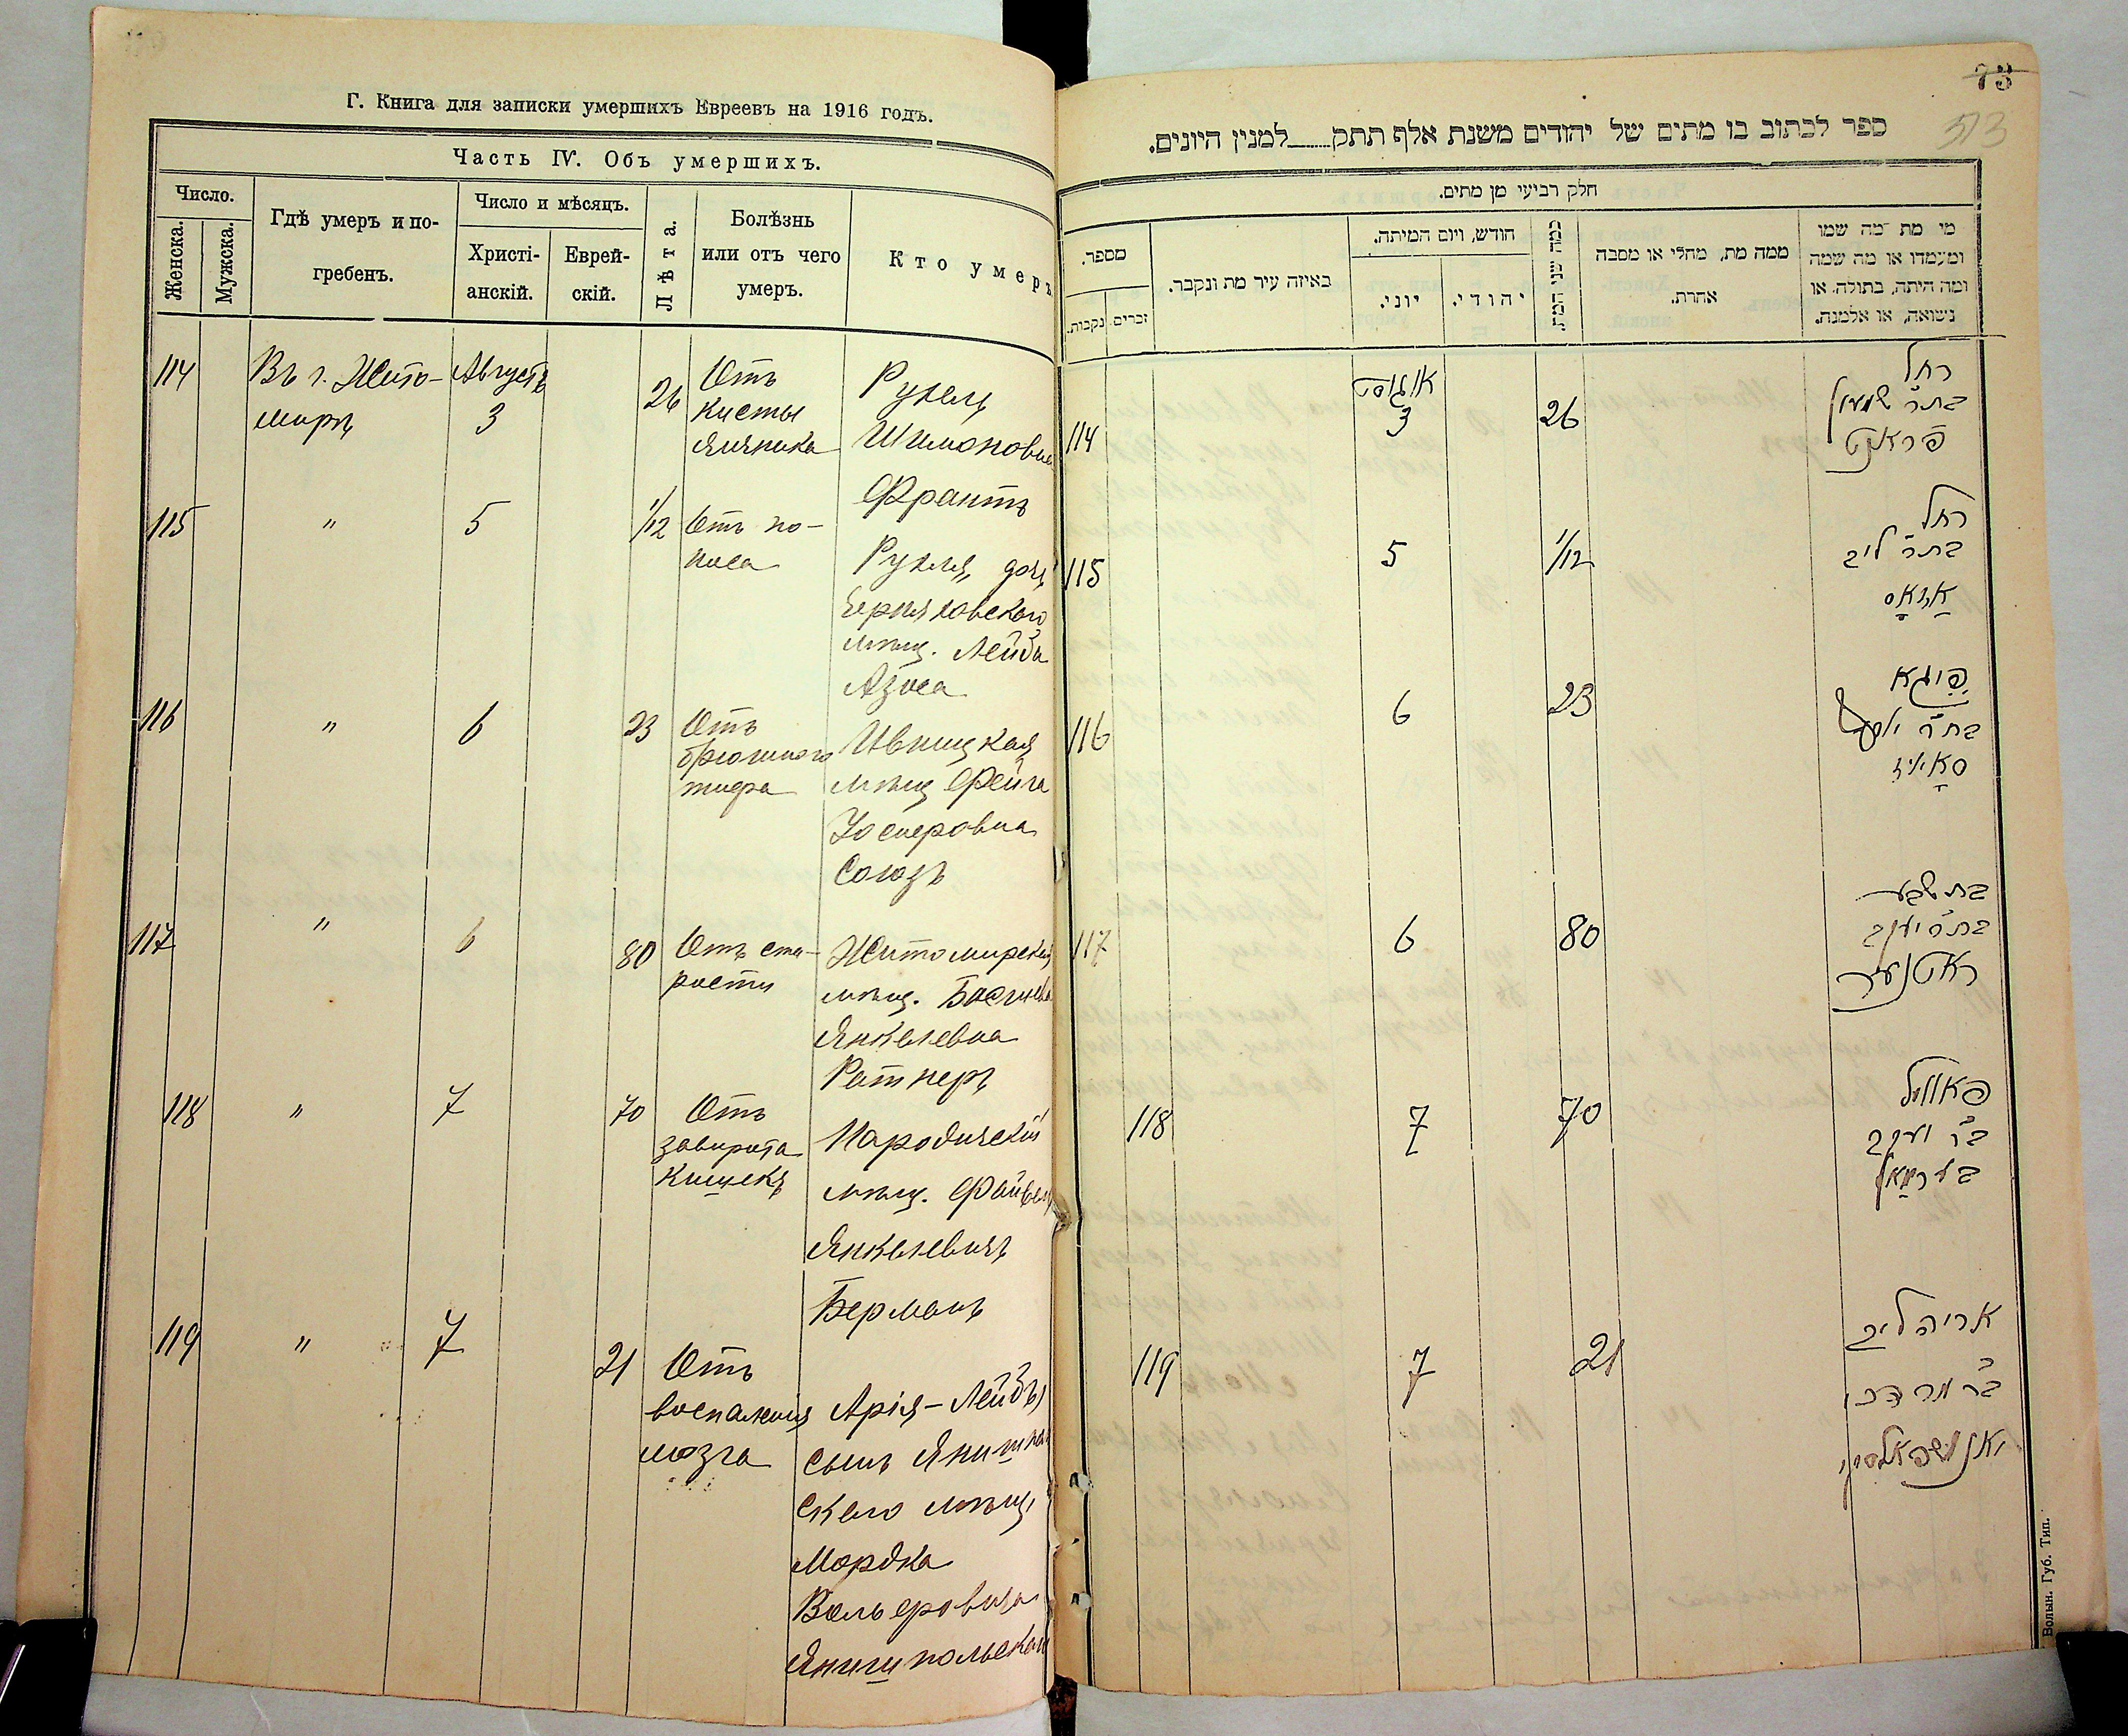 Г. Книга для записки умершихъ Евреевъ на 1916 годъ.
Часть IV. Объ умершихъ.
Число.
Женска.
Мужска.
Гдѣ умеръ и по-
гребенъ.
Число и мѣсяцъ.
Христі-
анскій.
Еврей-
скій.
Лѣта.
Болѣзнь
или отъ чего
умеръ.
Кто умеръ
114
Въ г. Жито-
мирѣ
Августъ
3
26
Отъ
кисты
яичника
Рухель
Шимоновна
Франтъ
115
"
5
1/12
Отъ по-
носа
Рухля, дочь
Черняховскаго
мѣщ. Лейба
Азоса
116
"
6
23
Отъ
брюшного
тифа
Ивницкая
мѣщ Фейга
Іосифовна
Союзъ
117
"
6
80
Отъ ста-
рости
Житомирская
мѣщ. Басшева
Янкелевна
Ратнеръ
118
"
7
70
Отъ
заворота
кишекъ
Народичскій
мѣщ. Файвель
Янкелевичъ
Берманъ
119
"
7
21
Отъ
воспаленія
мозга
Арія-Лейбъ,
сынъ Янушполь
скаго мѣщ.
Мордка
Вольфовича
Янушпольскаго
73
513
ספר לכתוב בו מתים של יהודים משנת אלף תתק____למנין היונים.
חלק רביעי מן מתים.
מספר.
נקבות.
זכרים
באיזה עיר מת ונקבר.
חודש, ויום המיתה.
יוני.
יהודי.
כמה שני המת
ממה מת, מחלי או מסבה
אחרת.
מי מת מה שמו
ומעמדו או מה שמה
ומה היתה, בתולה או
נשואה, או אלמנה.
114
אוגוסט
3
26
רחל
בת״ר שמעון
פראנט
115
5
1/12
רחל
בת״ר ליב
אַזאָס
116
6
23
פֿייגא
בת״ר יוסף
סאָיוז
117
6
80
בת שבע
בת״ר יעקב
ראטנער
118
7
70
פאוויל
ב״ר יעקב
בערמאַן
119
7
21
אריה ליב
ב״ר מרדכי
יאנושפאלסקי
Волын. Губ. Тип.